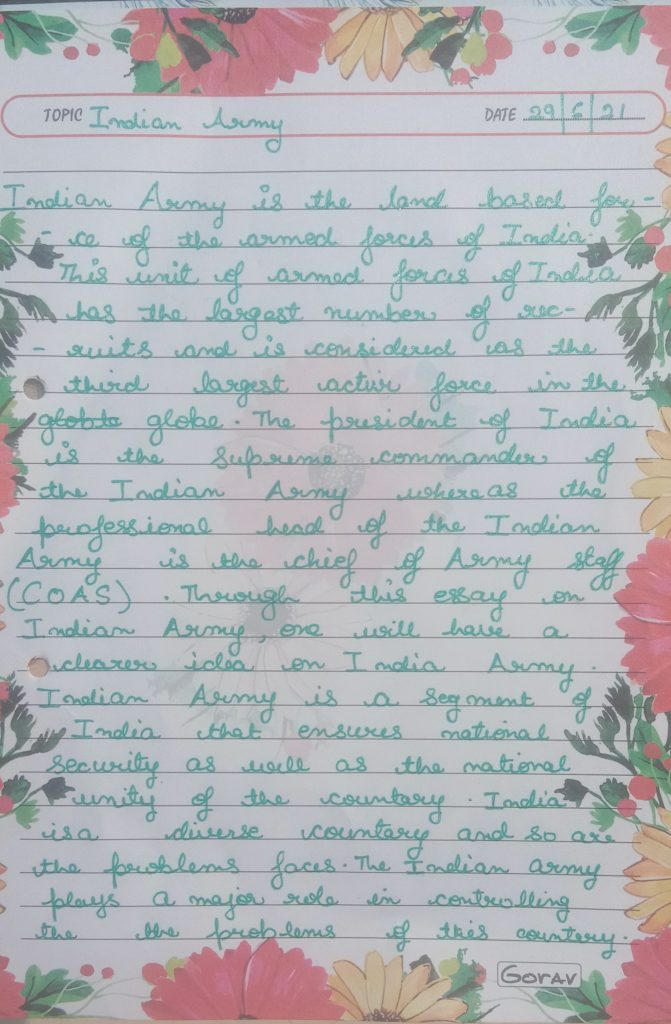 TOPIC Indian Army DATE 29/6/21
Indian Army is the land based for-
- ce of the armed forces of India.
This unit of armed forces of India
has the largest number of rec-
- ruits and is considered as the
third largest active force in the
globe. The president of India
is the supreme commander of
the Indian Army where as the
professional head of the Indian
Army is the chief of Army staff
(COAS). Through this essay on
Indian Army, one will have a
clearer idea on India Army.
Indian Army is a segment of
India that ensures national
security as well as the national
unity of the countary. India
is a diverse countary and so are
the problems faces. The Indian army
plays a major role in controlling
the the problems of this countery.
Gorav